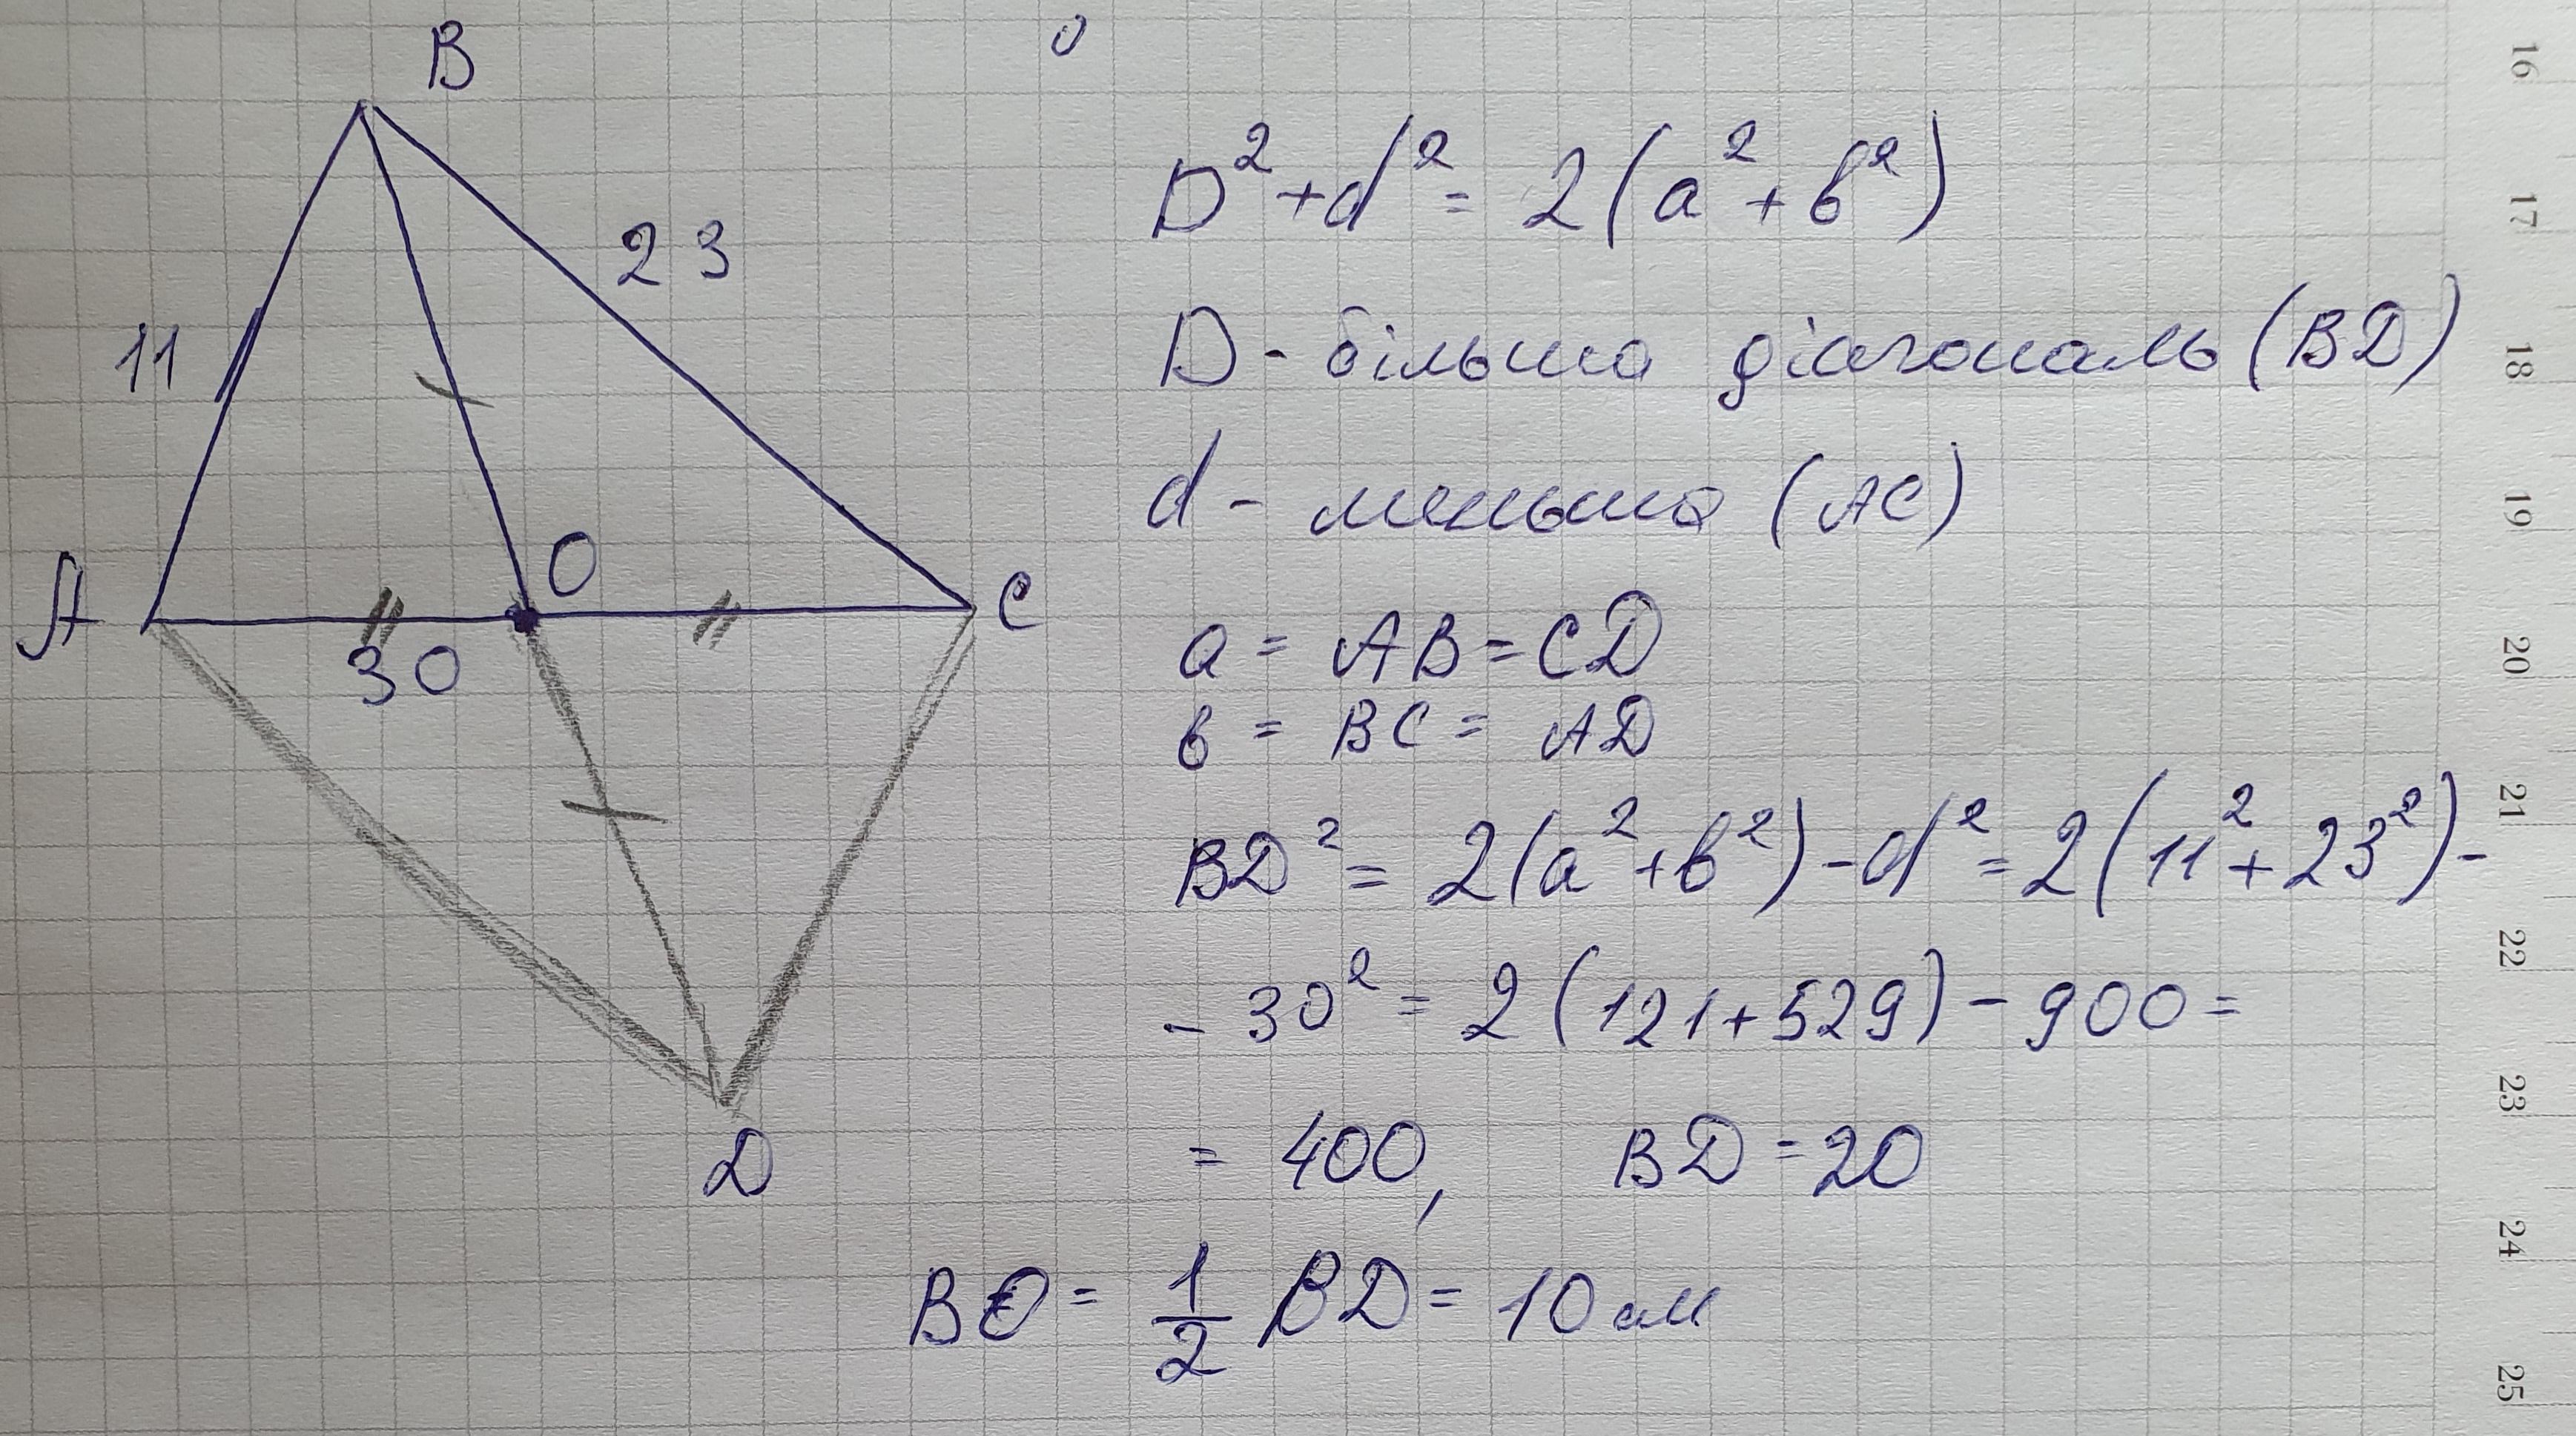 B
11
23
A
O
C
30
D
D² + d² = 2(a² + b²)
D - більша діагональ (BD)
d - меньша (AC)
a = AB = CD
b = BC = AD
BD² = 2(a² + b²) - d² = 2(11² + 23²) -
- 30² = 2(121 + 529) - 900 =
= 400, BD = 20
BO = 1/2 BD = 10 см
16
17
18
19
20
21
22
23
24
25